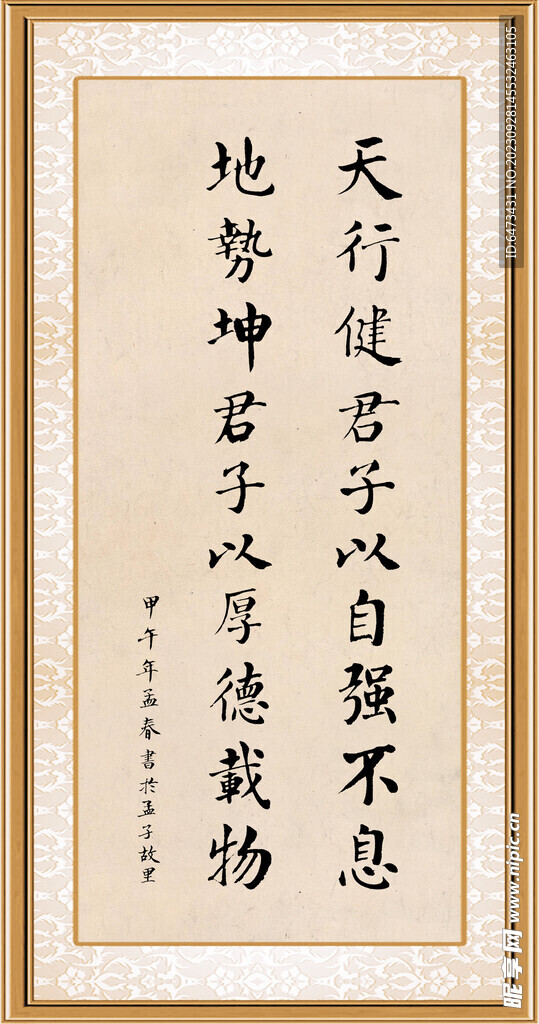 天行健君子以自强不息
地勢坤君子以厚德載物
甲午年孟春書於孟子故里
ID:6473431 NO:20230928145532463105
昵享网 www.nipic.cn